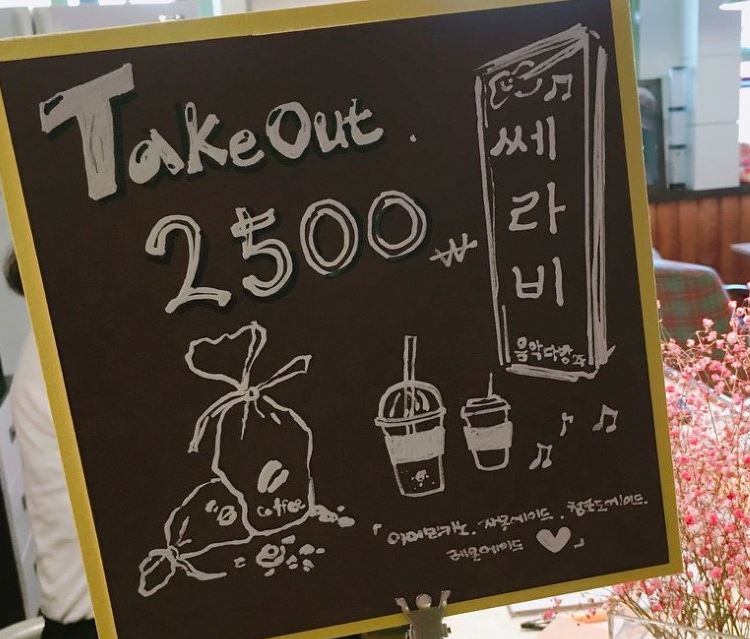 Take Out.
2500₩
쎄
라
비
음악다방
coffee
「아메리카노. 자몽에이드. 청포도에이드.
레몬에이드 ♥」